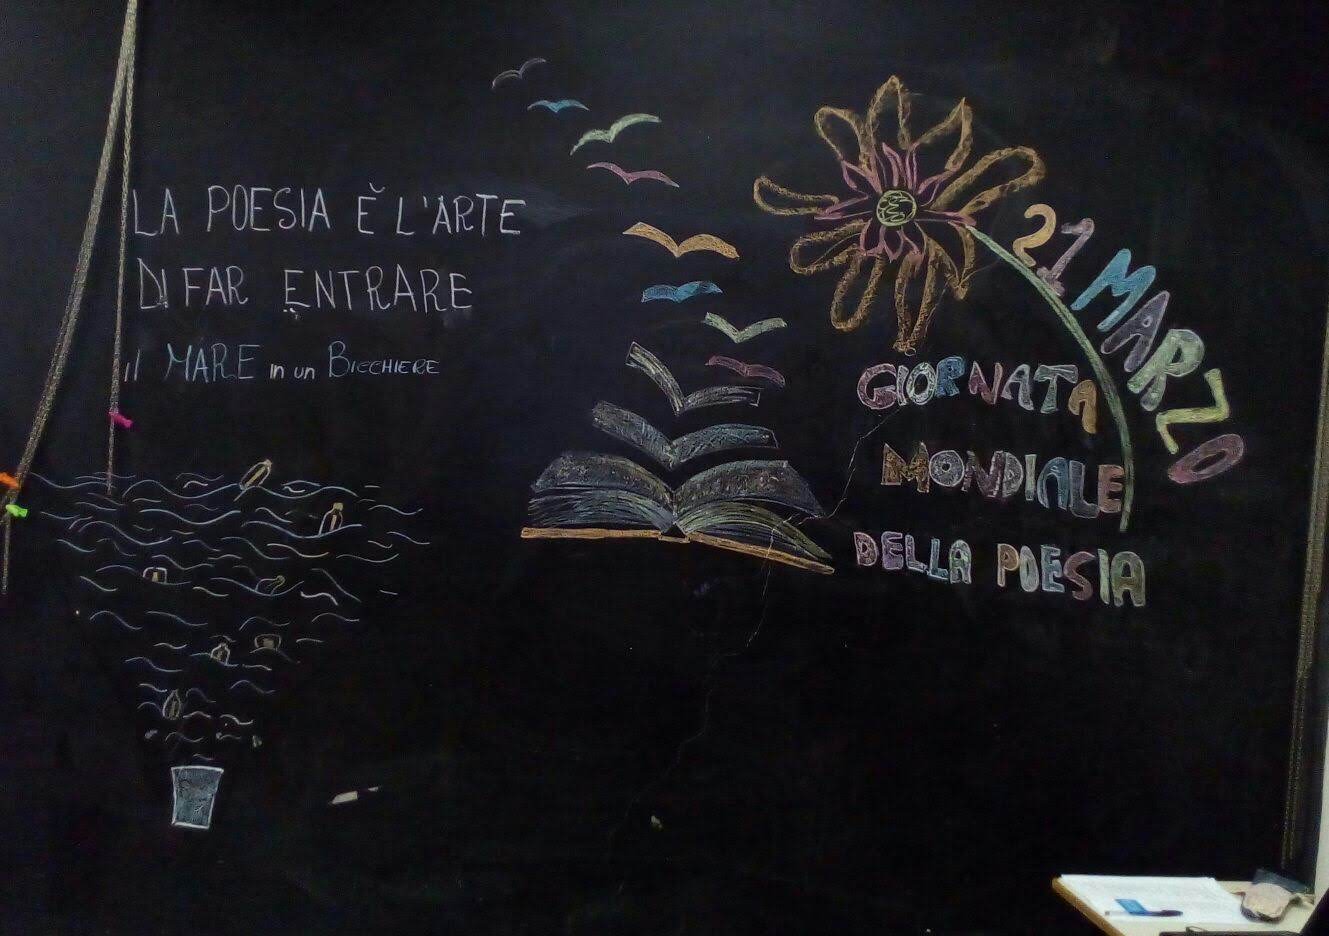 LA POESIA È L'ARTE
DI FAR ENTRARE
il MARE in un BICCHIERE
21 MARZO
GIORNATA
MONDIALE
DELLA POESIA